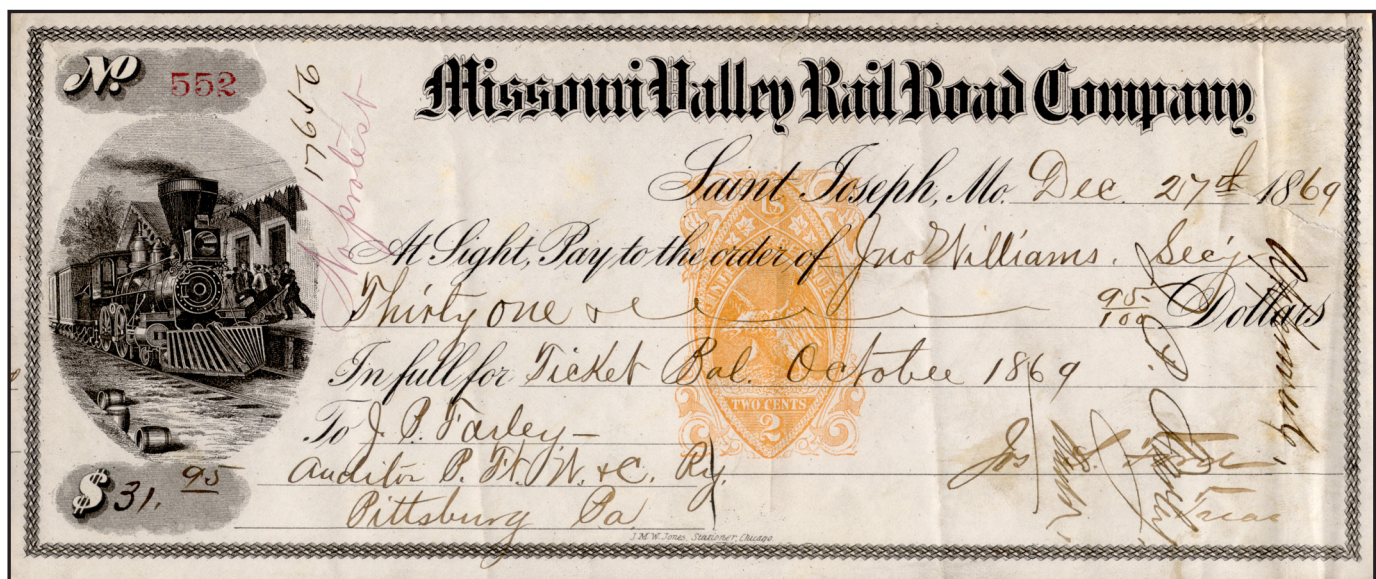 No. 552
Missouri Valley Rail Road Company.
Saint Joseph, Mo. Dec. 27th 1869
At Sight, Pay to the order of Jno Williams. Sec'y
Thirty one & 95/100 Dollars
In full for Ticket Bal. October 1869
To J. P. Farley
Auditor P. Ft. W. & C. Ry.
Pittsburg Pa
$ 31. 95
Jos
Treas
No protest
TWO CENTS
2
U S
J. M. W. Jones, Stationer, Chicago.